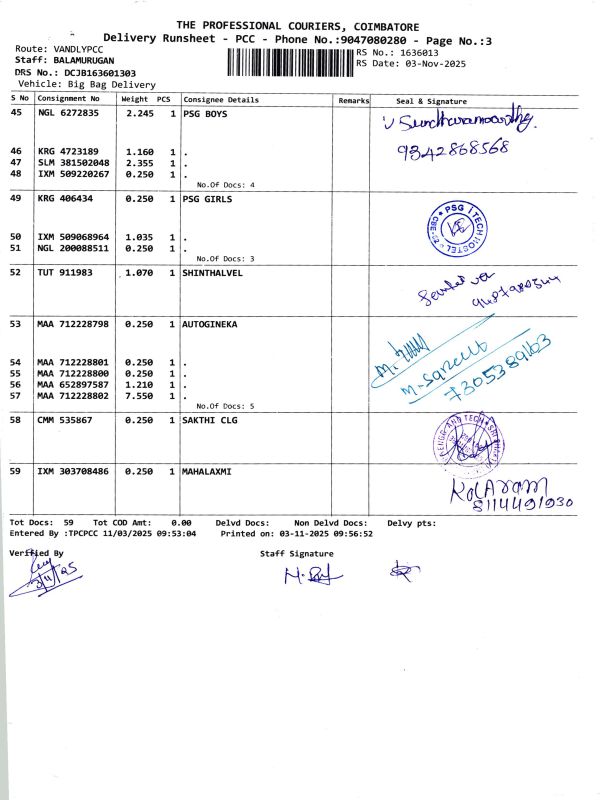 THE PROFESSIONAL COURIERS, COIMBATORE
Delivery Runsheet - PCC - Phone No.:9047080280 - Page No.:3
Route: VANDLYPCC
RS No.: 1636013
Staff: BALAMURUGAN
RS Date: 03-Nov-2025
DRS No.: DCJB163601303
Vehicle: Big Bag Delivery
S No Consignment No Weight PCS Consignee Details Remarks Seal & Signature
45 NGL 6272835 2.245 1 PSG BOYS
9342868568
46 KRG 4723189 1.160 1 .
47 SLM 381502048 2.355 1 .
48 IXM 509220267 0.250 1 .
No.Of Docs: 4
49 KRG 406434 0.250 1 PSG GIRLS
50 IXM 509068964 1.035 1 .
51 NGL 200088511 0.250 1 .
No.Of Docs: 3
52 TUT 911983 1.070 1 SHINTHALVEL
53 MAA 712228798 0.250 1 AUTOGINEKA
54 MAA 712228801 0.250 1 .
55 MAA 712228800 0.250 1 .
56 MAA 652897587 1.210 1 .
57 MAA 712228802 7.550 1 .
7305389163
No.Of Docs: 5
58 CMM 535867 0.250 1 SAKTHI CLG
59 IXM 303708486 0.250 1 MAHALAXMI
8114491930
Tot Docs: 59 Tot COD Amt: 0.00 Delvd Docs: Non Delvd Docs: Delvy pts:
Entered By :TPCPCC 11/03/2025 09:53:04 Printed on: 03-11-2025 09:56:52
Verified By Staff Signature
3/11/25